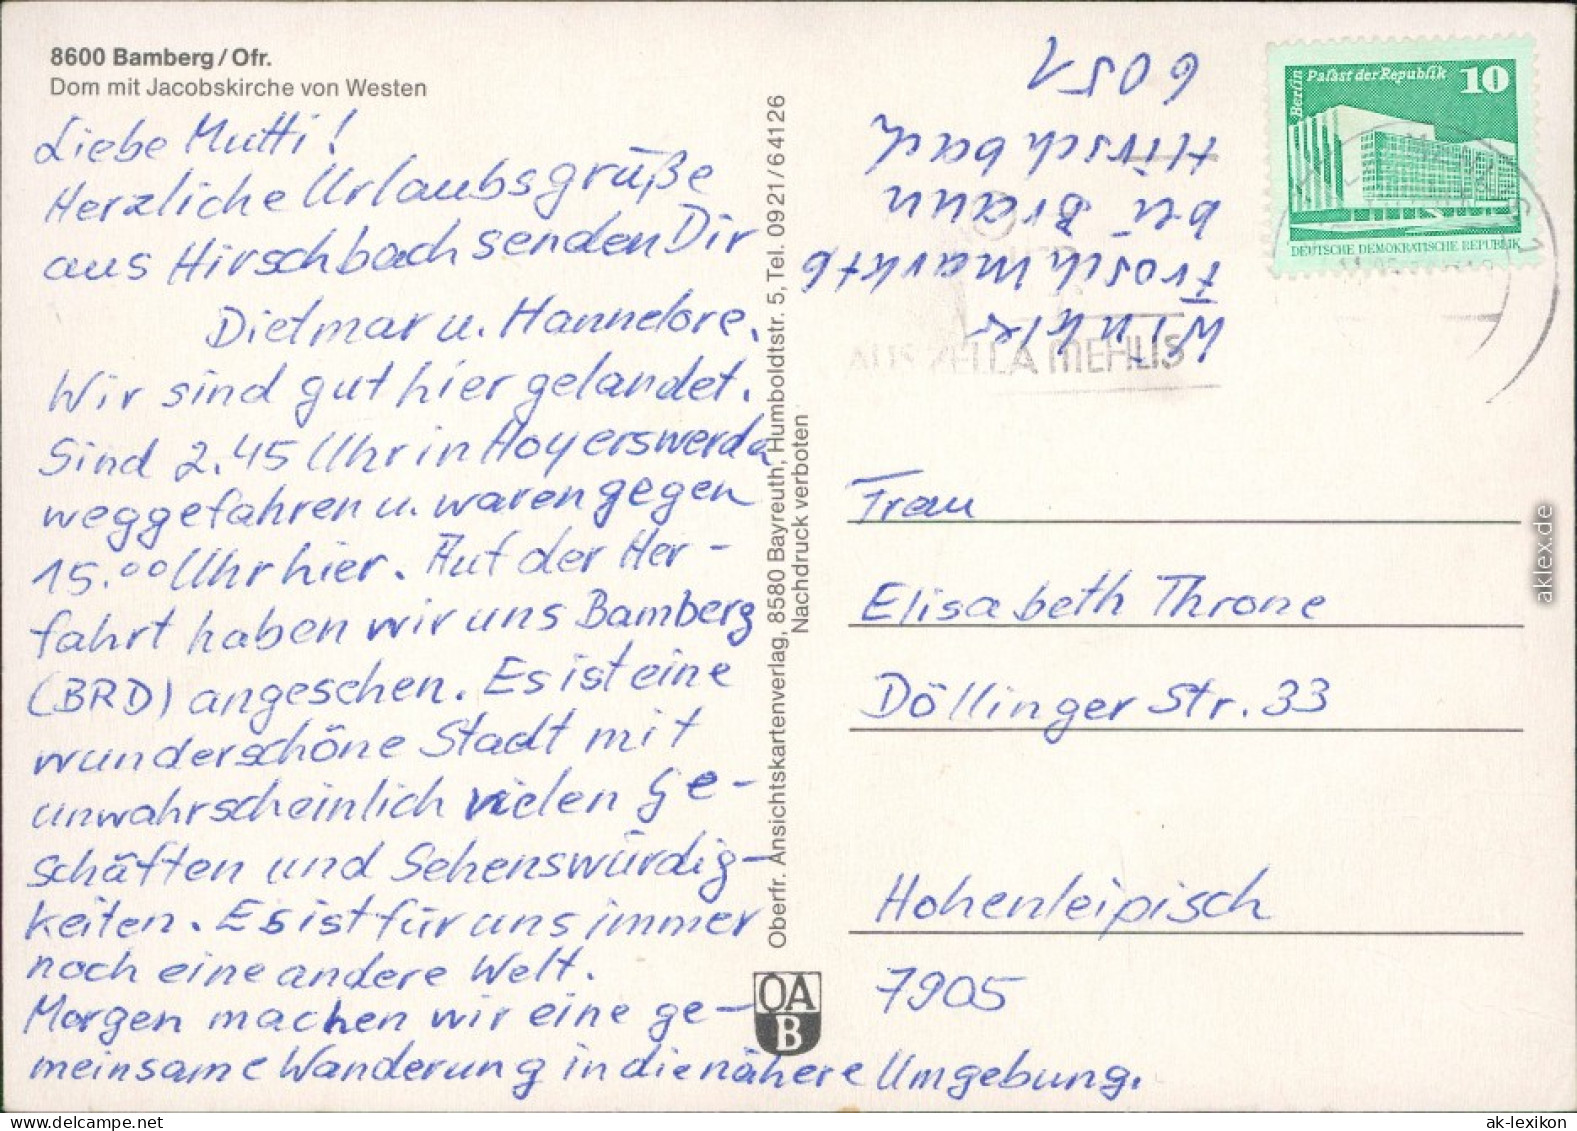 8600 Bamberg/Ofr.
Dom mit Jacobskirche von Westen
Liebe Mutti!
Herzliche Urlaubsgrüße
aus Hirschbach senden Dir
Dietmar u. Hannelore.
Wir sind gut hier gelandet.
Sind 2.45 Uhr in Hoyerswerda
weggefahren u. waren gegen
15.00 Uhr hier. Auf der Her-
fahrt haben wir uns Bamberg
(BRD) angesehen. Es ist eine
wunderschöne Stadt mit
unwahrscheinlich vielen Ge-
schäften und Sehenswürdig-
keiten. Es ist für uns immer
noch eine andere Welt.
Morgen machen wir eine ge-
meinsame Wanderung in die nähere Umgebung.
Oberfr. Ansichtskartenverlag, 8580 Bayreuth, Humboldtstr. 5, Tel. 0921/64126
Nachdruck verboten
OAB
Winkler
Froschmarkt 6
bei Braun
Hirschbach
6051
Berlin Palast der Republik 10
DEUTSCHE DEMOKRATISCHE REPUBLIK
AUS ZELLA MEHLIS
Frau
Elisabeth Throne
Döllinger Str. 33
Hohenleipisch
7905
aklex.de
ak-lexikon